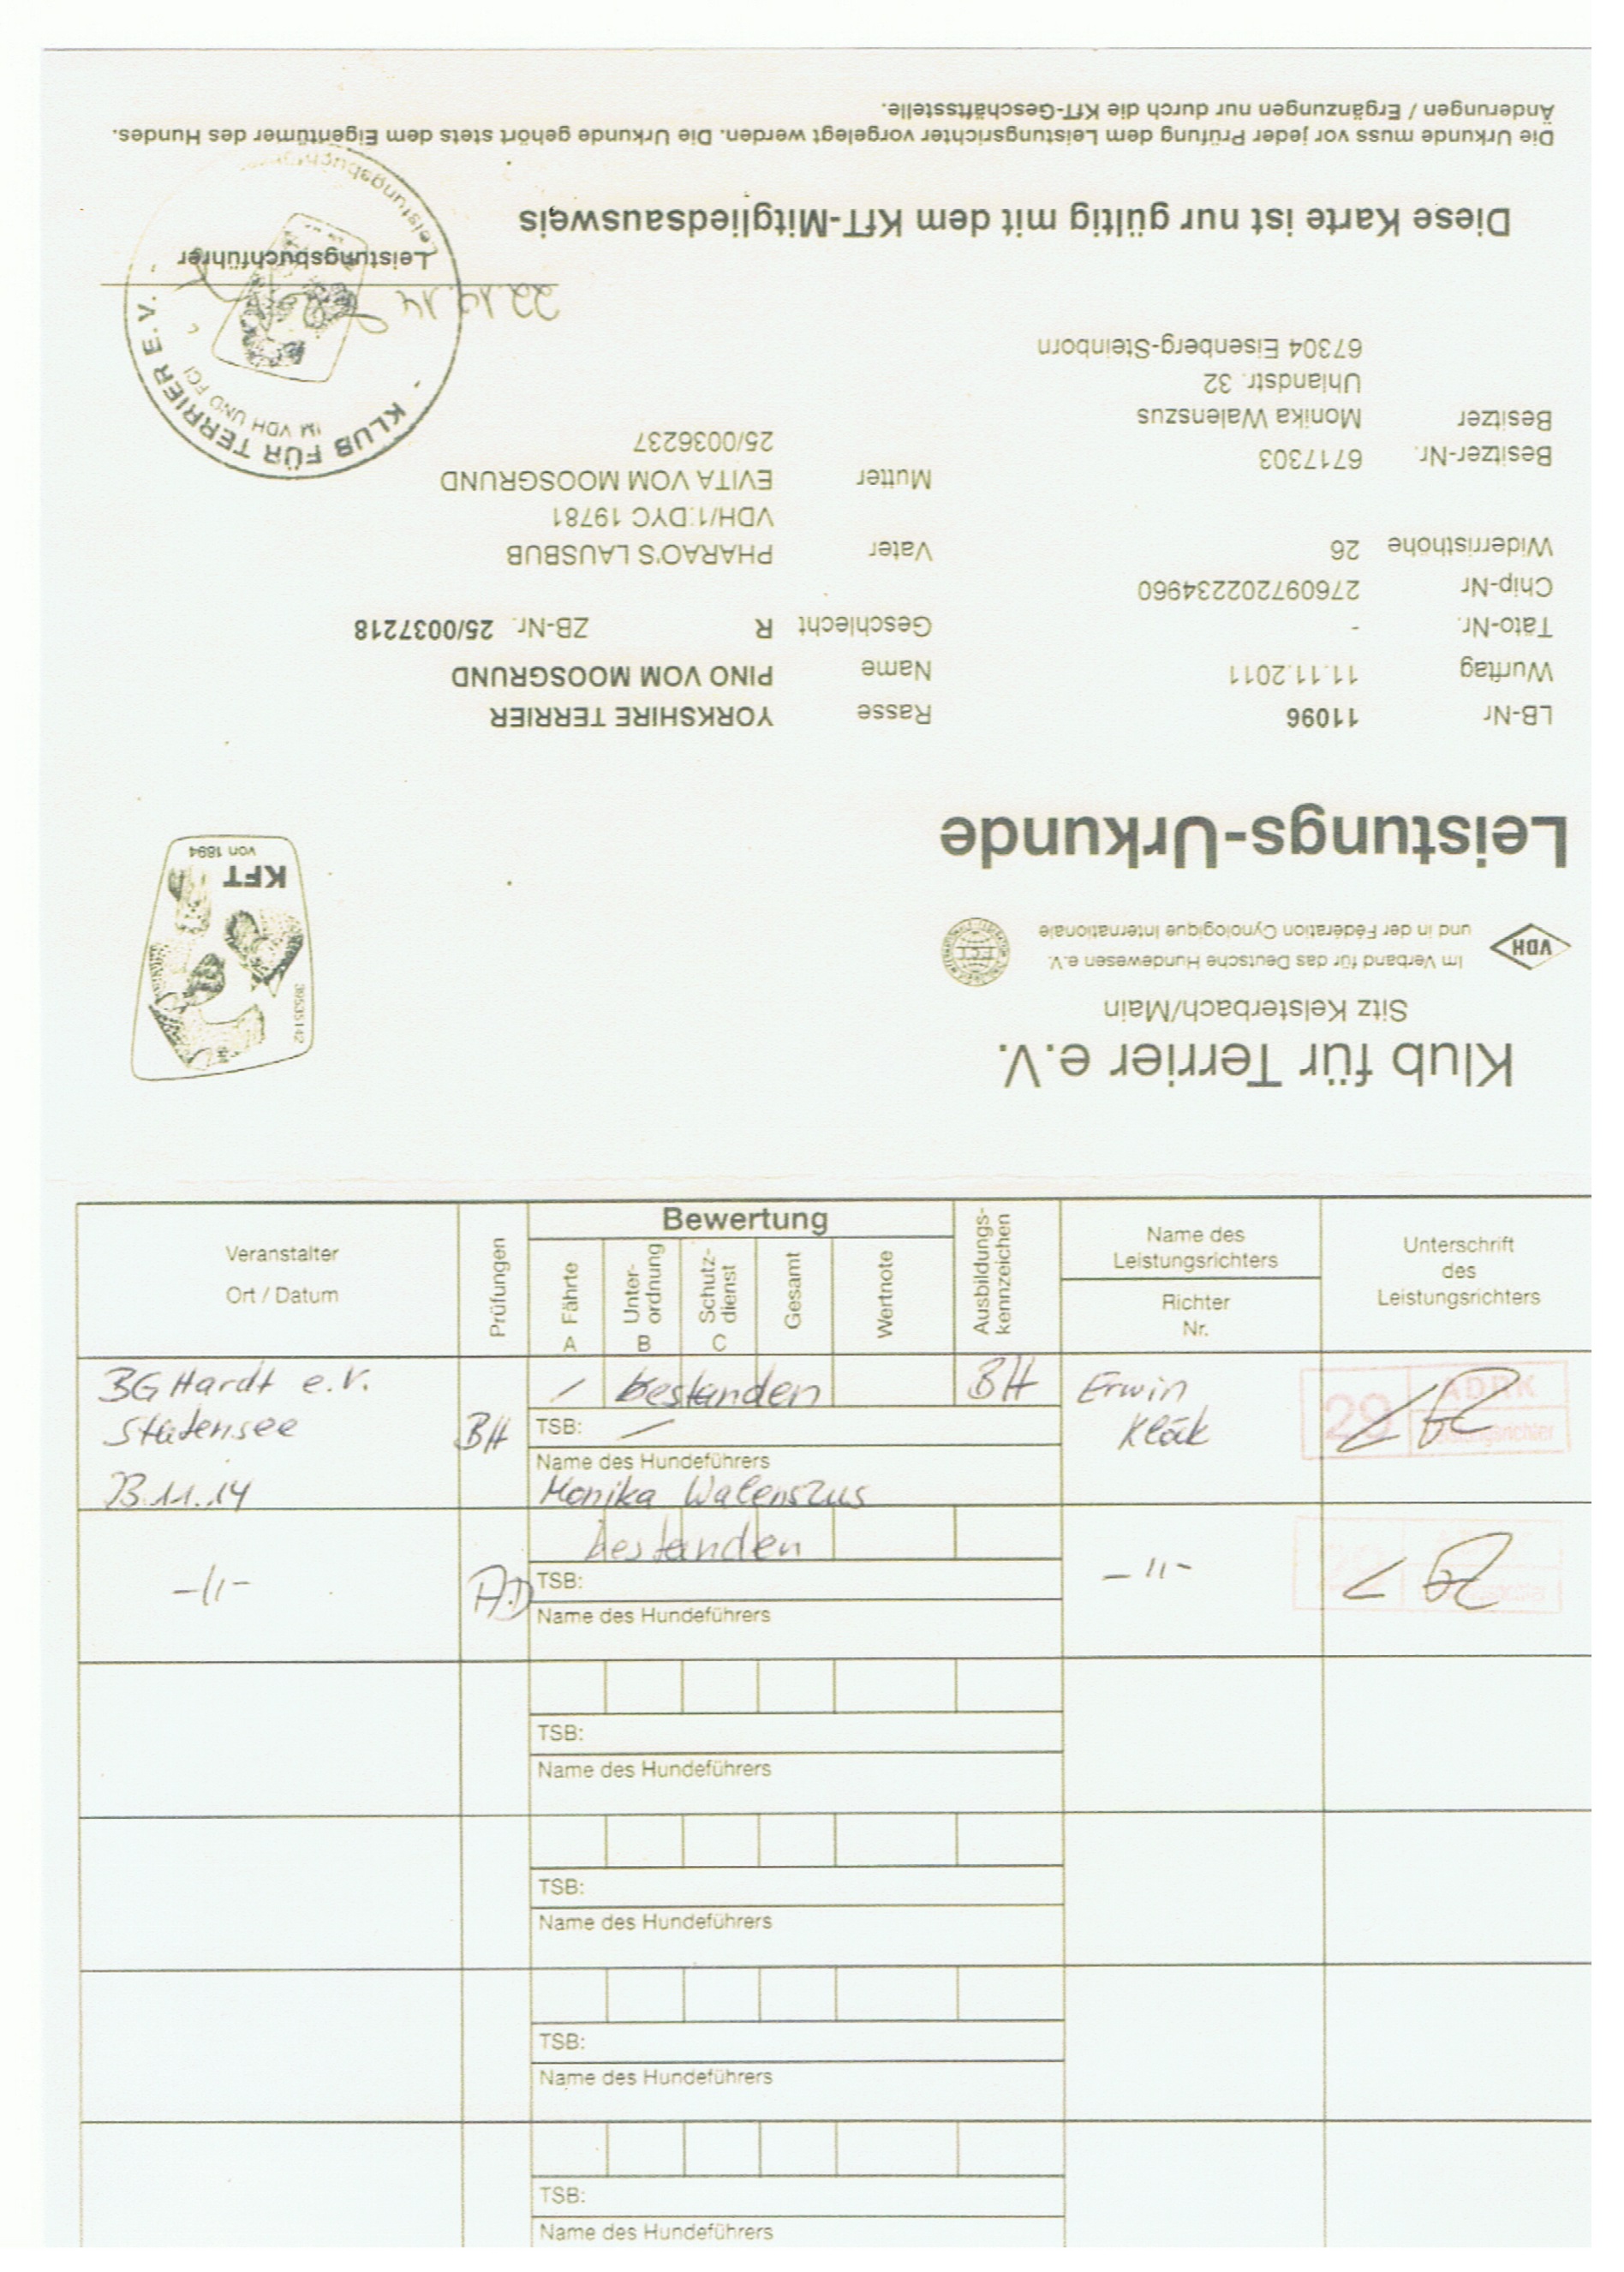 Klub für Terrier e.V.
Sitz Kelsterbach/Main
VDH
Im Verband für das Deutsche Hundewesen e.V.
und in der Fédération Cynologique Internationale
FCI
39535142
KFT
von 1894
Leistungs-Urkunde
LB-Nr 11096 Rasse YORKSHIRE TERRIER
Wurftag 11.11.2011 Name PINO VOM MOOSGRUND
Täto-Nr. - Geschlecht R ZB-Nr. 25/0037218
Chip-Nr 276097202234960
Widerristhöhe 26 Vater PHARAO'S LAUSBUB
VDH/1:DYC 19781
Besitzer-Nr. 6717303 Mutter EVITA VOM MOOSGRUND
Besitzer Monika Walenszus 25/0036237
Uhlandstr. 32
67304 Eisenberg-Steinborn
KLUB FÜR TERRIER E.V.
IM VDH UND FCI
Leistungsbuchführer
Diese Karte ist nur gültig mit dem KfT-Mitgliedsausweis
Die Urkunde muss vor jeder Prüfung dem Leistungsrichter vorgelegt werden. Die Urkunde gehört stets dem Eigentümer des Hundes.
Änderungen / Ergänzungen nur durch die KfT-Geschäftsstelle.
Veranstalter
Ort / Datum
Prüfungen
Bewertung
Fährte A
Unter-ordnung B
Schutz-dienst C
Gesamt
Wertnote
Ausbildungs-kennzeichen
Name des
Leistungsrichters
Richter
Nr.
Unterschrift
des
Leistungsrichters
BG Hardt e.V. / bestanden BH Erwin
BH TSB: / 29 ADRK
Name des Hundeführers
23.11.14 Monika Walenszus
-"- bestanden -"-
AD TSB:
Name des Hundeführers
TSB:
Name des Hundeführers
TSB:
Name des Hundeführers
TSB:
Name des Hundeführers
TSB:
Name des Hundeführers